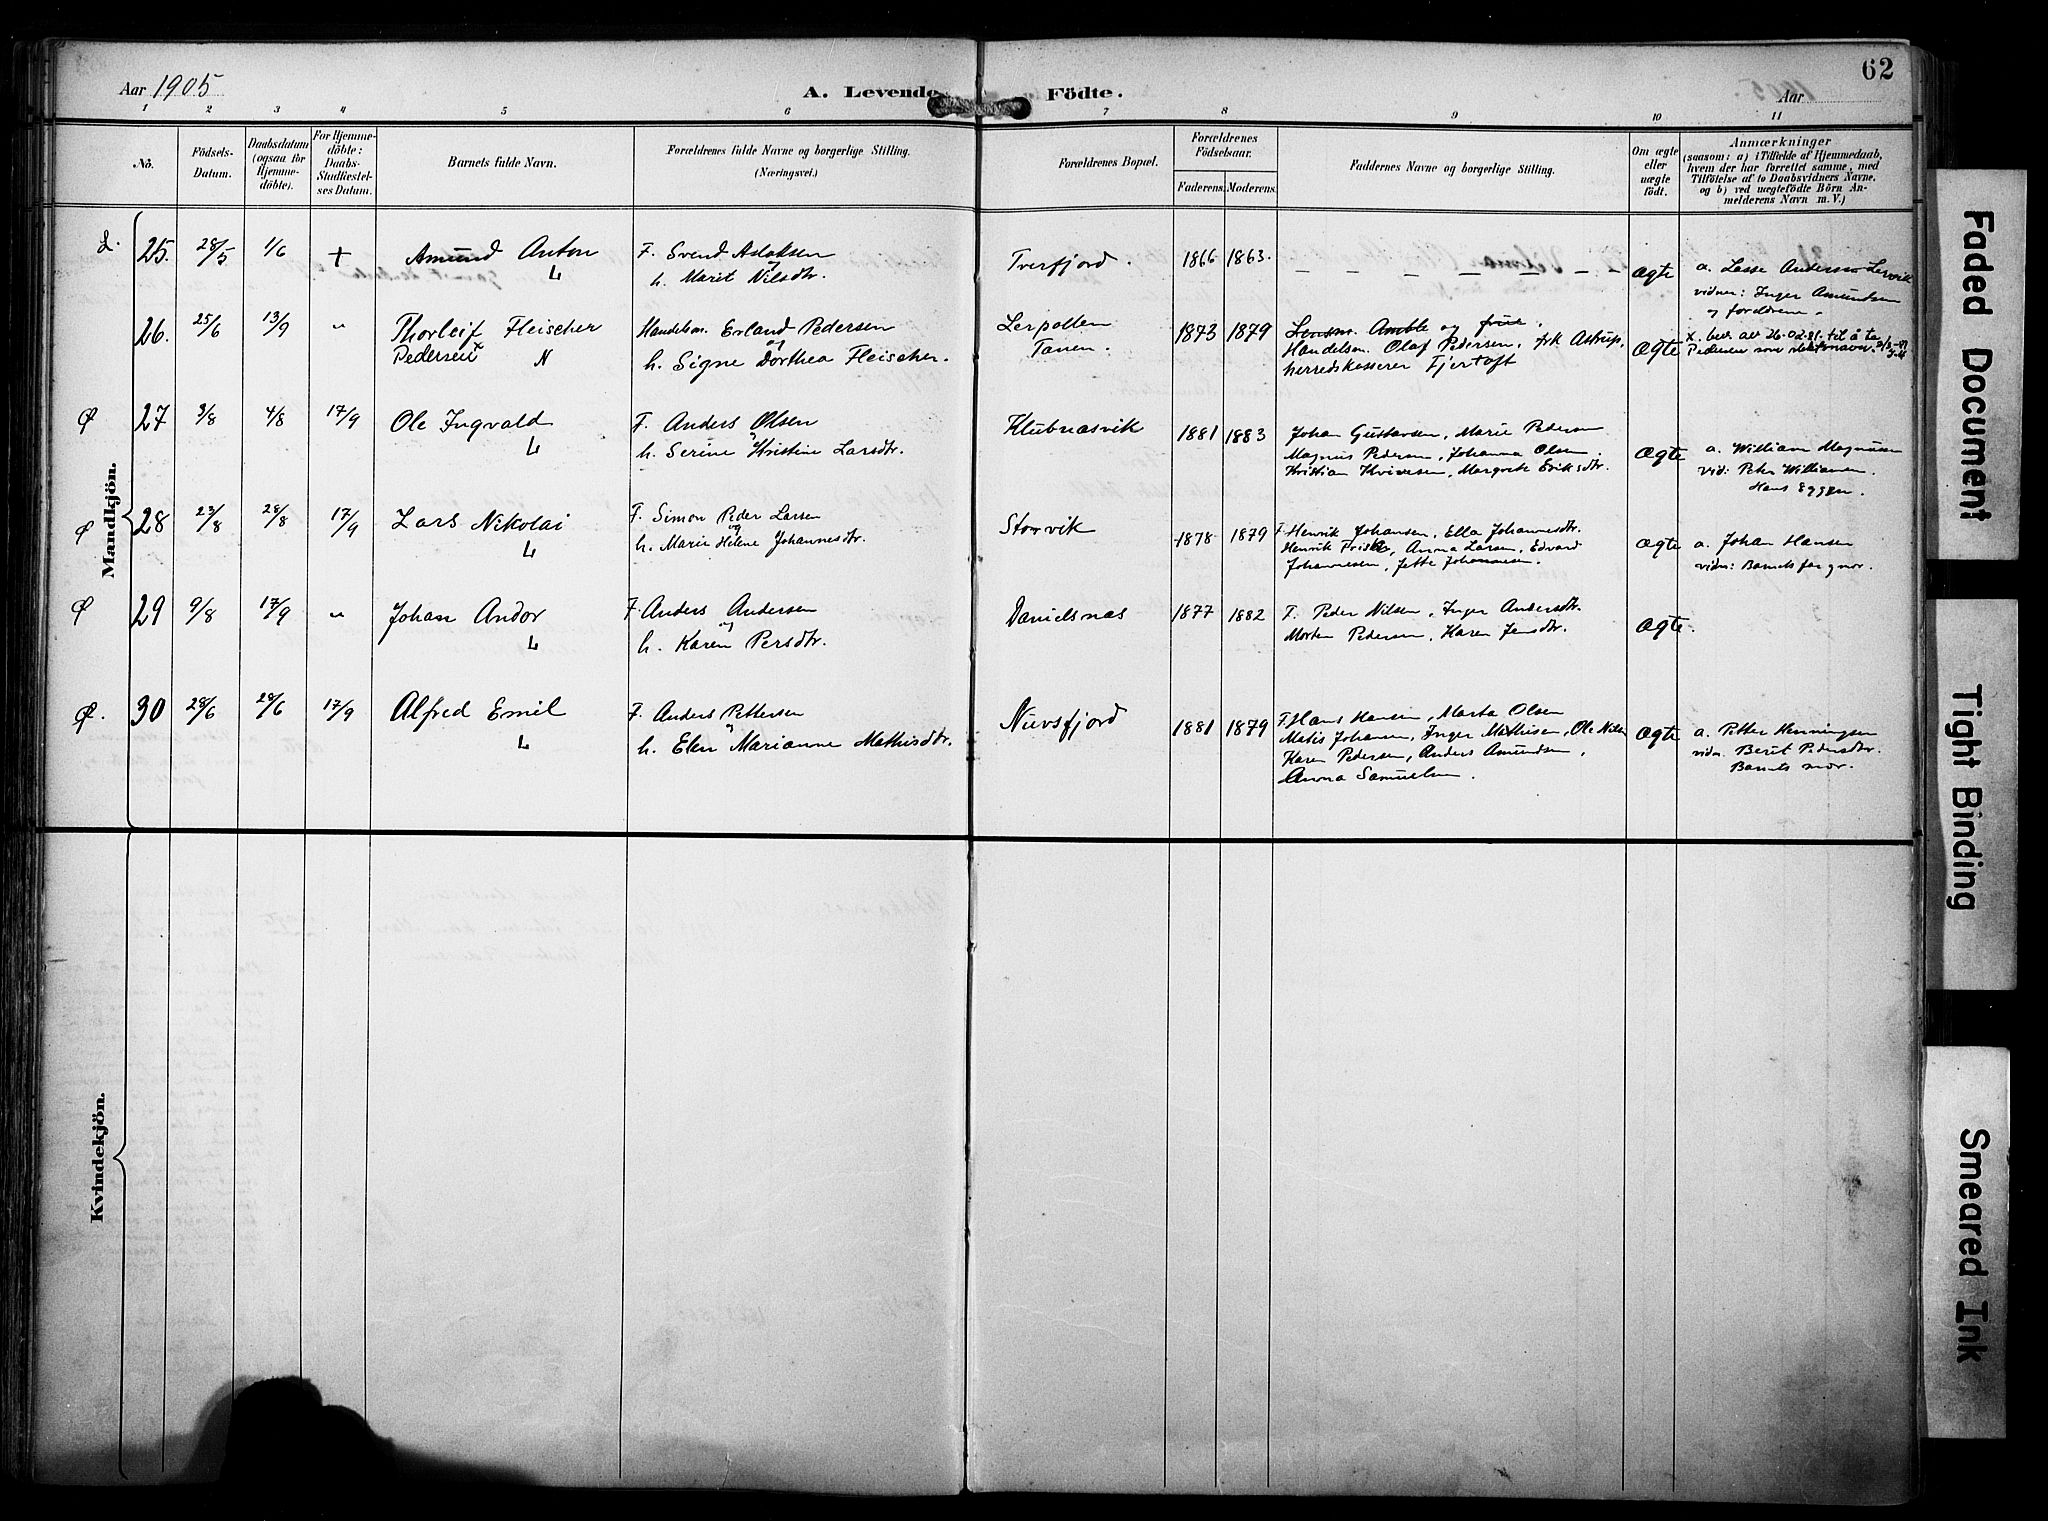 62
Aar 1905
A. Levende Födte.
Aar
1 2 3 4 5 6 7 8 9 10 11
No.
Födsels-
Datum.
Daabsdatum
(ogsaa for
Hjemme-
döbte).
For Hjemme-
döbte:
Daabs-
Stadfæstel-
ses Datum.
Barnets fulde Navn.
Forældrenes fulde Navne og borgerlige Stilling.
(Næringsvei.)
Forældrenes Bopæl.
Forældrenes
Födselsaar.
Faderens. Moderens.
Faddernes Navne og borgerlige Stilling.
Om ægte
eller
uægte
födt.
Anmærkninger
(saasom: a) i Tilfælde af Hjemmedaab,
hvem der har forrettet samme, med
Tilföielse af to Daabsvidners Navne,
og b) ved uægtefödte Börn An-
melderens Navn m. V.)
Mandkjön.
L. 25. 28/5 1/6 + Amund Anton
L
F. Svend Aslaksen
og
h. Marit Nilsdtr.
Tverfjord.
1866 1863.
– – – – – – –
ægte
a. Lasse Anderssen Lervik
vidner: Inger Amundsen
og foreldrene.
26. 25/6 13/9 " Thorleif Fleischer
Pedersen x N
Handelsm. Erland Pedersen
og
h. Signe Dorthea Fleischer.
Lerpollen
Tanen.
1873 1879
Lensm. Amble og frue.
Handelsm. Olaf Pedersen, frk Astrup,
herredskasserer Fjertoft
ægte
x. bev. av 26-02-81. til å ta
Pedersen som slektsnavn.
Ø 27 3/8 4/8 17/9 Ole Ingvald
L
F. Anders Olsen
og
h. Serine Kristine Larsdtr.
Klubnæsvik
1881 1883
Johan Gustavsen, Marie Pedersen
Magnus Pedersen, Johanna Olsen.
Kristian Kvivesen, Margrete Eriksdtr.
ægte
a. William Magnussen
vid: Peter Williamsen.
Hans Eggen.
Ø 28 23/8 28/8 17/9 Lars Nikolai
L
F. Simon Peder Larsen
og
h. Marie Helene Johannesdtr.
Storvik
1878 1879
F. Henrik Johansen, Ella Johannesdtr.
Henrik Frisk, Anna Larsen, Edvard
Johannesen, Jette Johannesen.
ægte
a. Johan Hansen
vidn: Barnets far g mor.
Ø 29 9/8 17/9 " Johan Andor
L
F. Anders Andersen
og
h. Karen Persdtr.
Danielsnæs
1877 1882
F. Peder Nilsen, Inger Andersdtr.
Morten Pedersen, Karen Jensdtr.
ægte.
Ø. 30 28/6 28/6 17/9 Alfred Emil
L
F. Anders Pettersen
og
h. Elen Marianne Mathisdtr.
Nuvsfjord
1881 1879
F. Hans Hansen, Marta Olsen
Matis Johansen, Inger Mathisen, Ole Nilsen
Karen Pedersen, Anders Amundsen,
Anna Samuelsen.
ægte
a. Petter Henningsen
vidn. Berit Pedersdtr.
Barnets mor.
Kvindekjön.
Faded Document
Tight Binding
Smeared Ink